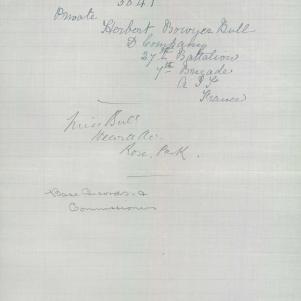 3041
Private
Herbert Bowyer Bull
D Company
27th Battalion
7th Brigade
A.I.F
France
Miss Bull
Rose Park.
Base Records
Commissioner